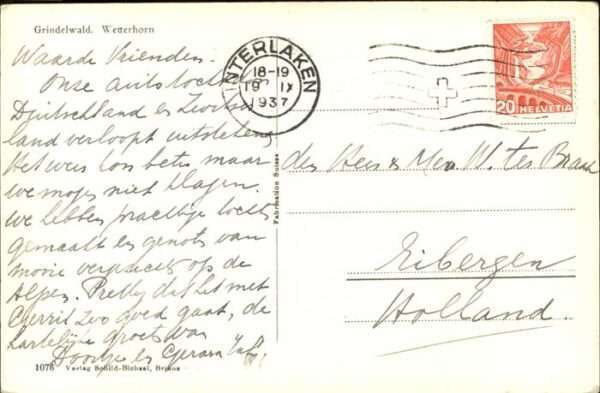 Grindelwald. Wetterhorn
Waarde Vrienden.
Onze autotocht
Duitschland en Zwitser
land verloopt uitstekend
Het weer kon beter maar
we mogen niet klagen.
We hebben prachtige tocht
gemaakt en genoten van
mooie vergezicht op de
Alpen. Prettig dat het met
Gerrit zoo goed gaat, de
hartelijke groeten van
en Gerard
1076 Verlag Schild-Bichsel, Brienz
Fabrication Suisse
INTERLAKEN
18-19
19 IX
1937
20 HELVETIA
den Heer & Mevr. W. ter Braak
Eibergen
Holland.